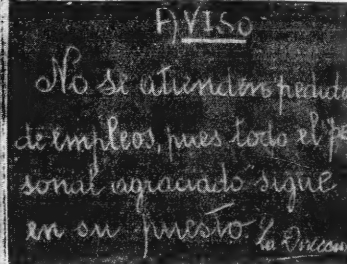 AVISO
No se atienden pedido
de empleos, pues todo el pe
sonal agraciado sigue
en su puesto.
La